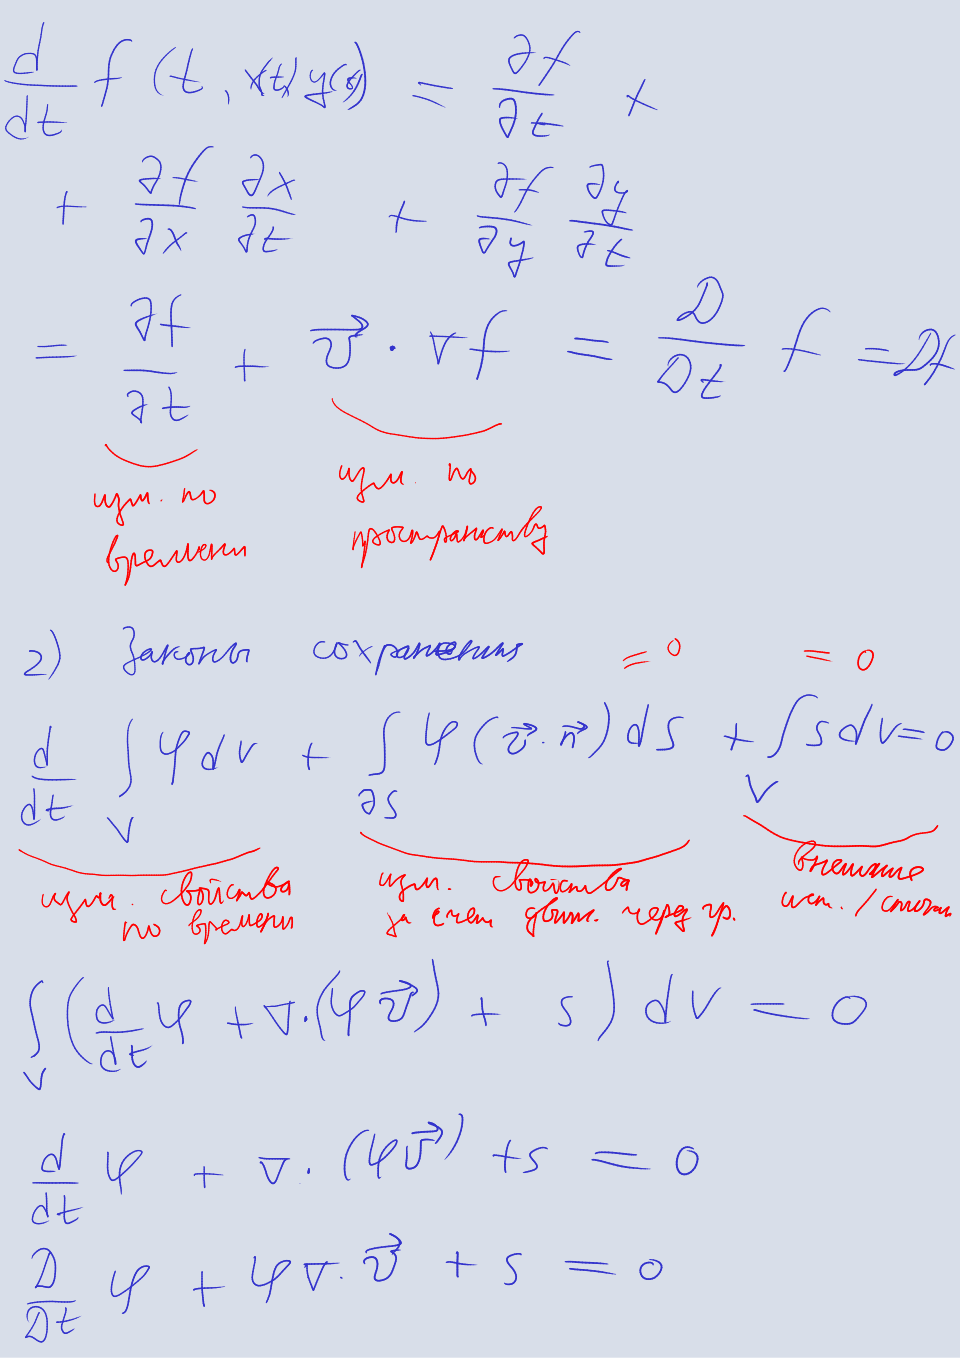 d/dt f (t, x(t) y(t)) = ∂f/∂t +
+ ∂f/∂x ∂x/∂t + ∂f/∂y ∂y/∂t
= ∂f/∂t + v⃗ · ∇f = D/Dt f = Df
изм. по времени
изм. по пространству
2) Законы сохранения = 0 = 0
d/dt ∫_V φ dv + ∫_∂S φ (v⃗ · n⃗) dS + ∫_V s dv = 0
изм. свойства по времени
изм. свойства за счет движ. через гр.
внешние ист. / стоки
∫_V (d/dt φ + ∇·(φ v⃗) + s) dv = 0
d/dt φ + ∇· (φ v⃗) + s = 0
D/Dt φ + φ ∇· v⃗ + s = 0